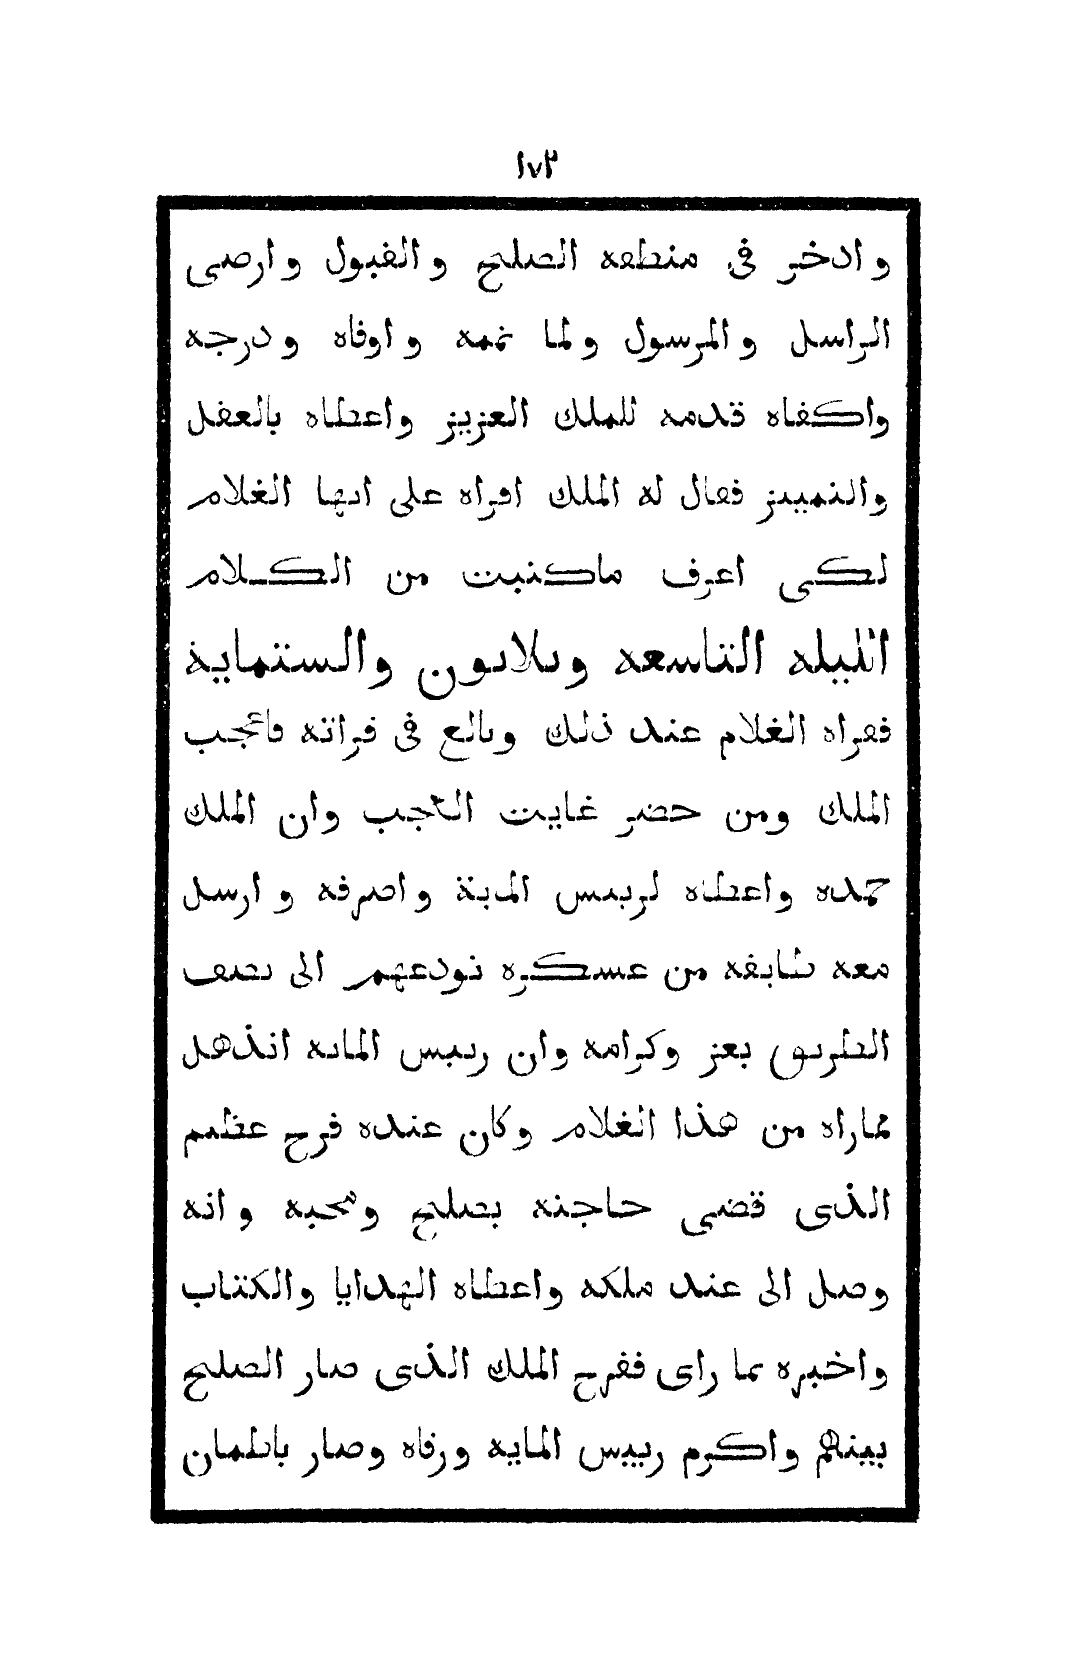 ١٧٣
وادخر في منطقه الصلح والقبول وارضى
الراسل والمرسول ولما تممه واوفاه ودرجه
واكفاه قدمه للملك العزيز واعطاه بالعقل
والتمييز فقال له الملك اقراه على ايها الغلام
لكى اعرف ماكتبت من الكلام
الليله التاسعه وثلاثون والستماية
فقراه الغلام عند ذلك وبالغ في قراته فاتعجب
الملك ومن حضر غايت التعجب وان الملك
حمده واعطاه لرييس الماية واصرفه وارسل
معه طايفه من عسكره تودعهم الى نصف
الطريق بعز وكرامه وان رييس المايه انذهل
مماراه من هذا الغلام وكان عنده فرح عظيم
الذى قضى حاجته بصلح ومحبه وانه
وصل الى عند ملكه واعطاه الهدايا والكتاب
واخبره بما راى ففرح الملك الذى صار الصلح
بينهم واكرم رييس المايه ورقاه وصار باطمان